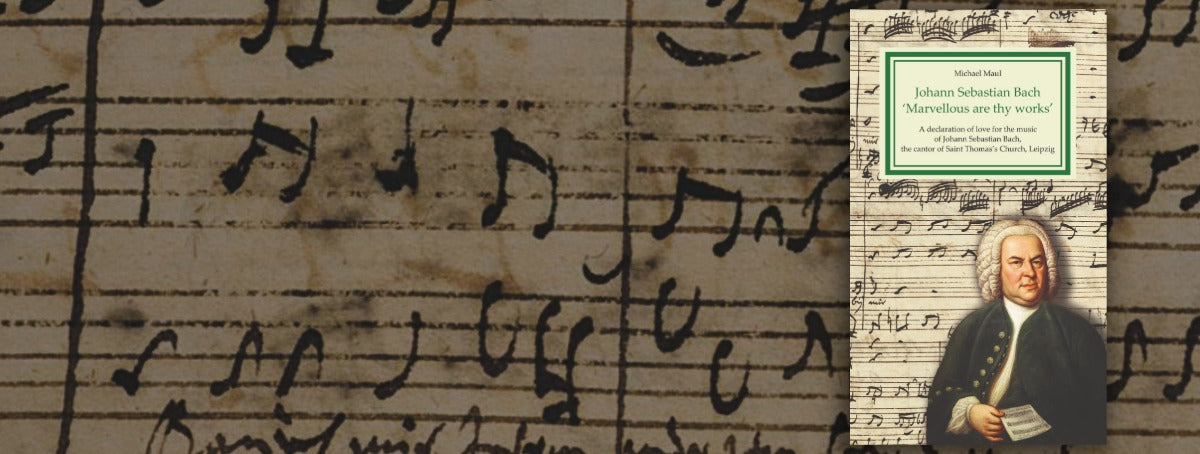 Michael Maul
Johann Sebastian Bach
‘Marvellous are thy works’
A declaration of love for the music
of Johann Sebastian Bach,
the cantor of Saint Thomas’s Church, Leipzig